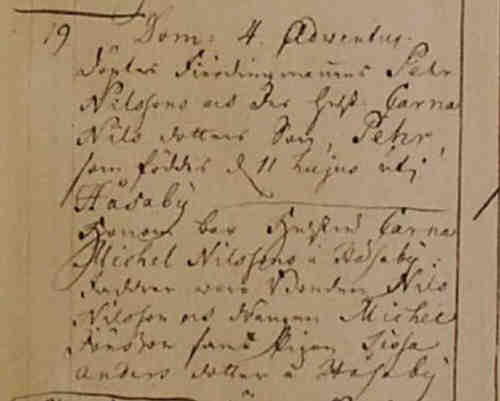 19 Dom: 4. Adventus.
Döptes Fierdingmannens Pehr
Nilssons och Des hust: Carna
Nils dotters Son, Pehr,
som föddes d 11 hujus uti
Håsaby
Honom bar Hustru Carna
Michel Nilssons i Håsaby:
Faddrar woro Bonden Nils
Nilsson och Mannen Michel
Jönsson samt Pigan Sissa
Anders dotter i Håsaby